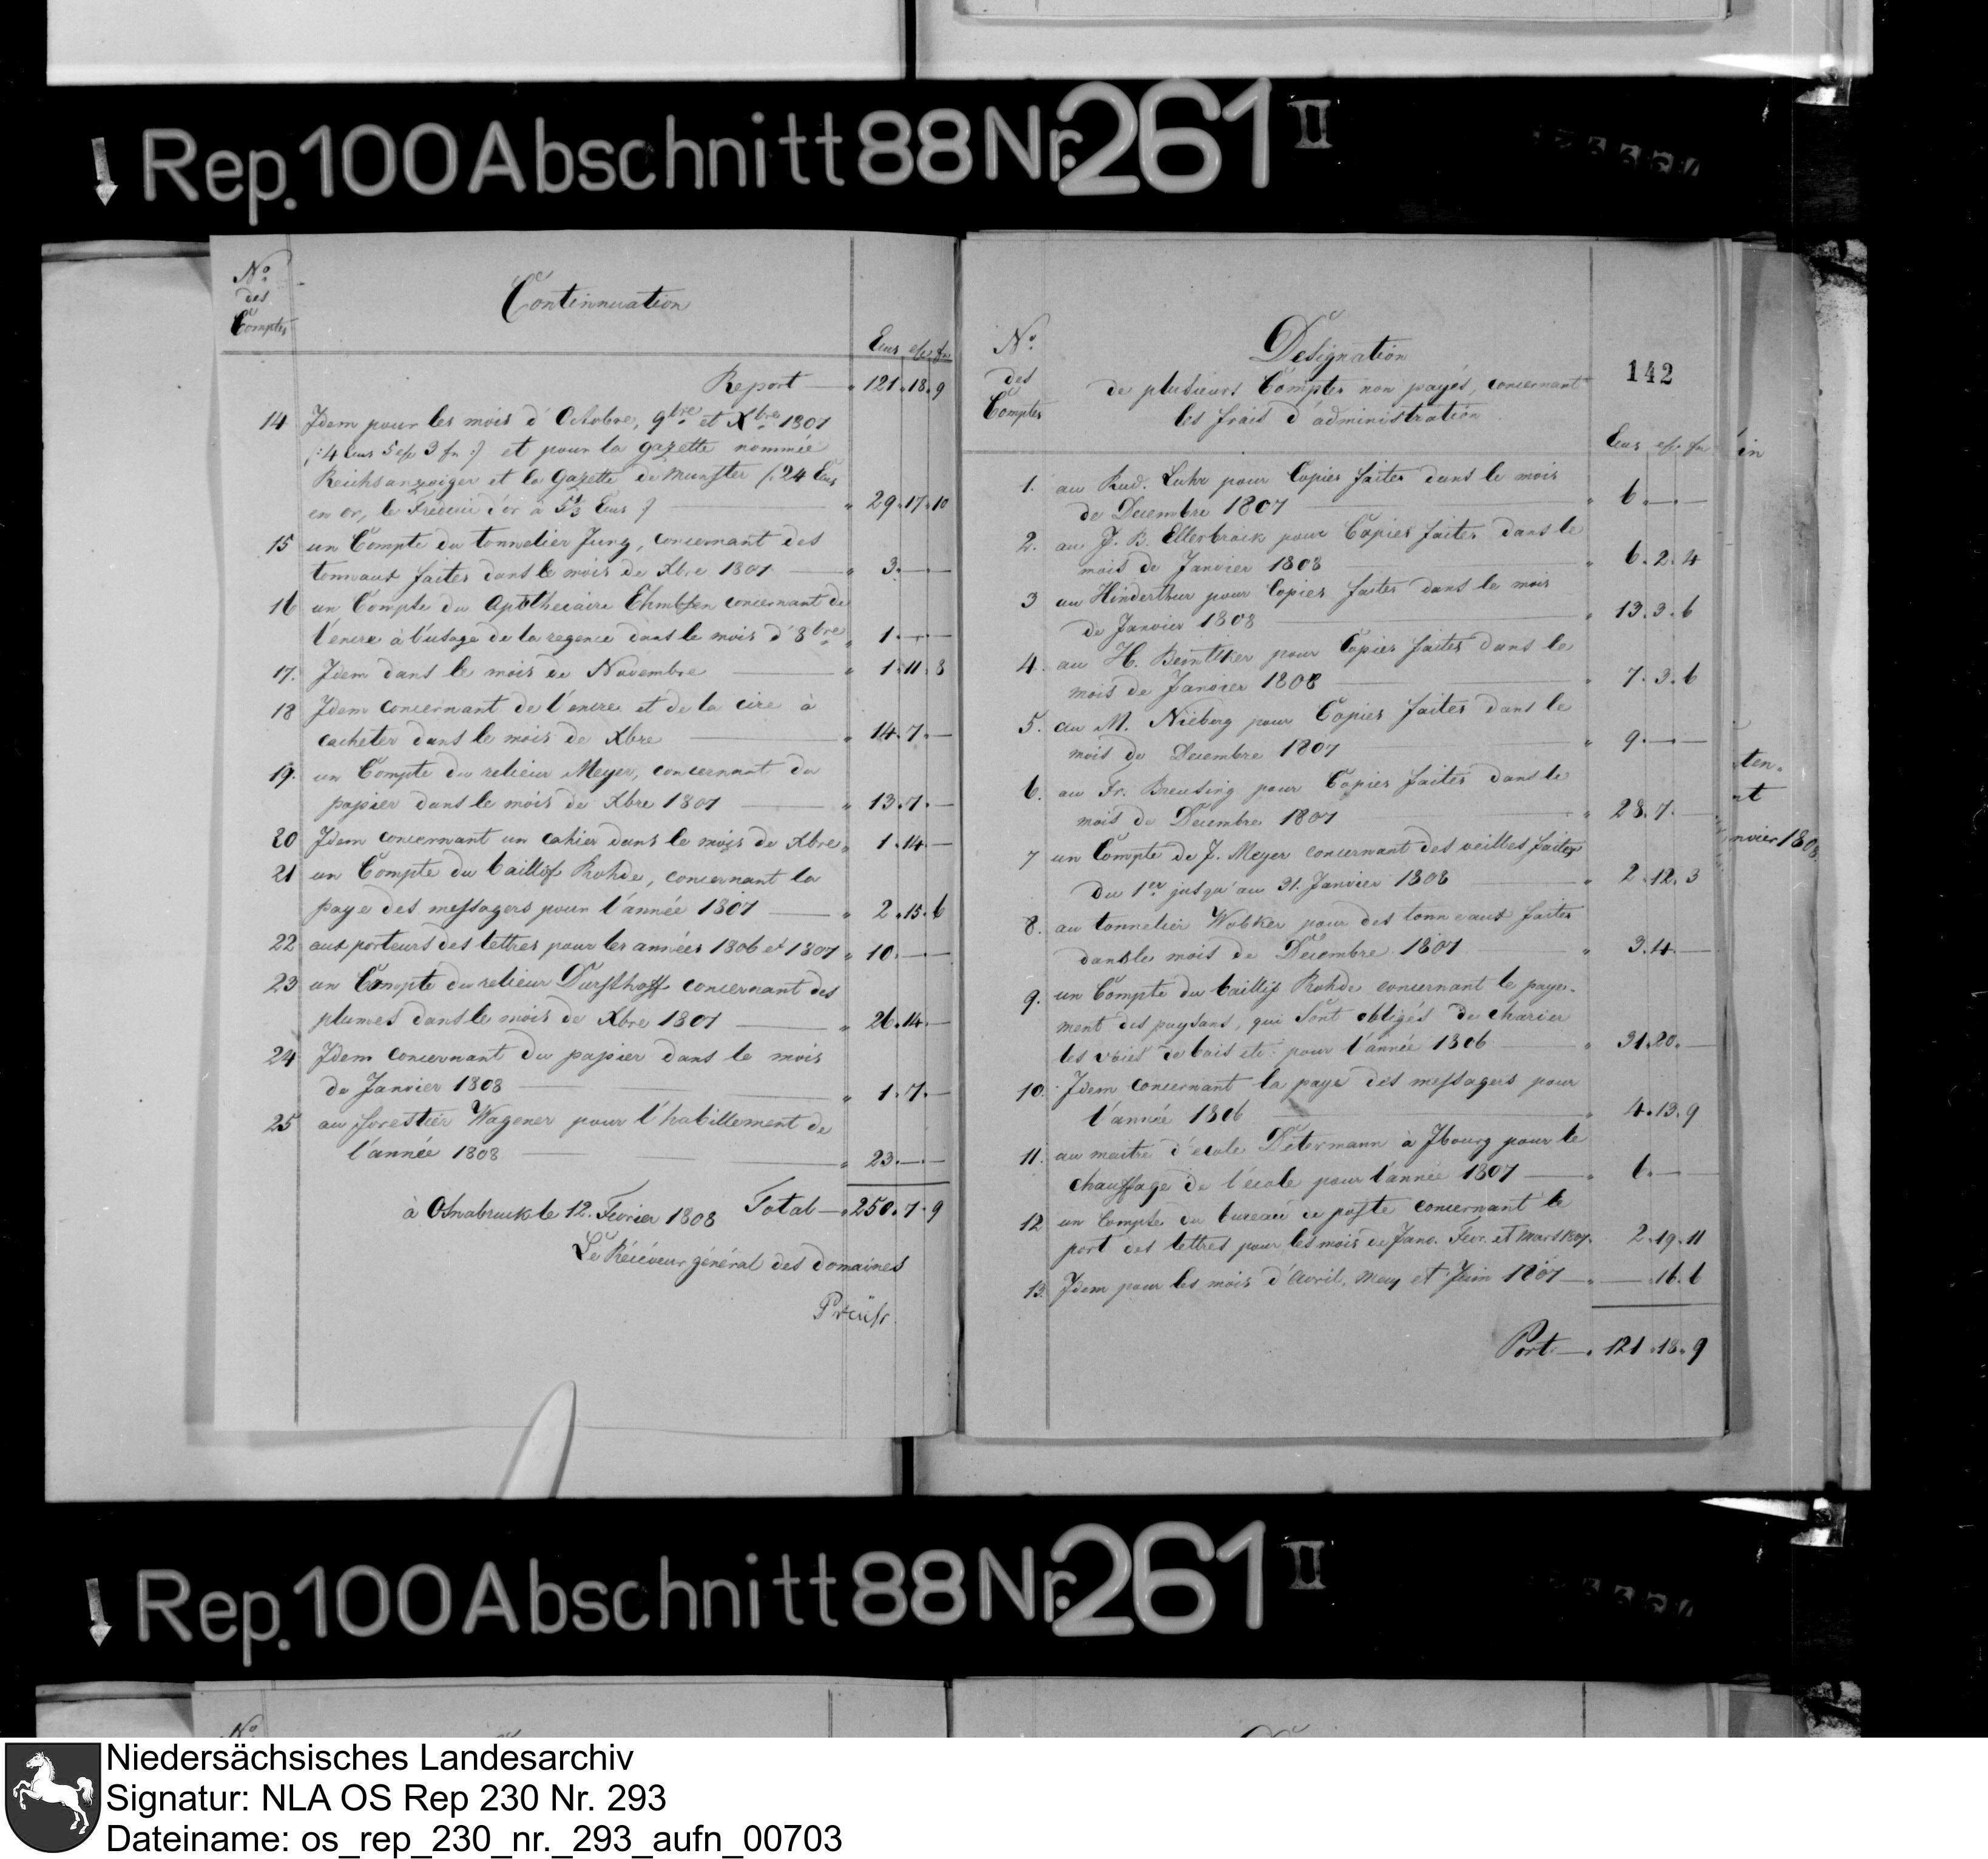 Rep. 100 Abschnitt 88 Nr. 261 II
No.
des
Comptes
Continuation
Ecus
Report — 121. 18. 9
14 Idem pour les mois d'Octobre, 9bre et Xbre 1807
(: 4 Ecus 5 3 :) et pour la gazette nommée
Reichsanzeiger et la Gazette de Munster (: 24 Ecus
en or, le Frederic d'or à 5⅓ Ecus :) — 29. 17. 10
15 un Compte du tonnelier Jung, concernant des
tonnaux faites dans le mois de Xbre 1807 — 3. — —
16 un Compte du Apothecaire Ehmbsen concernant de
l'encre à l'usage de la regence dans le mois d'8bre 1. — —
17. Idem dans le mois de Novembre — 1. 11. 8
18 Idem concernant de l'encre et de la cire à
cacheter dans le mois de Xbre — 14. 7. —
19. un Compte du relieur Meyer, concernant du
papier dans le mois de Xbre 1807 — 13. 7. —
20 Idem concernant un cahier dans le mois de Xbre 1. 14. —
21 un Compte du baillif Rohde, concernant la
paye des messagers pour l'année 1807 — 2. 15. 6
22 aux porteurs des lettres pour les années 1806 et 1807 10. — —
23 un Compte du relieur Dursthoff concernant des
plumes dans le mois de Xbre 1807 — 26. 14. —
24 Idem concernant du papier dans le mois
de Janvier 1808 — 1. 7. —
25 au forestier Wagener pour l'habillement de
l'année 1808 — 23. — —
à Osnabruck le 12. Fevrier 1808 Total — 250. 7. 9
Le Récéveur général des domaines
142
No.
des
Comptes
Designation
de plusieurs Comptes non payés, concernant
les frais d'administration
Ecus
1. au Rud. Luhr pour Copies faites dans le mois
de Decembre 1807 — 6. — —
2. au J. B. Ellerbrack pour Copies faites dans le
mois de Janvier 1808 — 6. 2. 4
3 au Hinderthur pour Copies faites dans le mois
de Janvier 1808 — 13. 3. 6
4. au H. Berntker pour Copies faites dans le
mois de Janvier 1808 — 7. 3. 6
5. au M. Nieberg pour Copies faites dans le
mois de Decembre 1807 — 9. — —
6. au Fr. Breusing pour Copies faites dans le
mois de Decembre 1807 — 28. 7. —
7 un Compte de J. Meyer concernant des veilles faites
du 1er jusqu'au 31. Janvier 1808 — 2. 12. 3
8. au tonnelier Wobker pour des tonneaux faites
dans le mois de Décembre 1807 — 3. 4. —
9. un Compte du baillif Rohde concernant le paye-
ment des paysans, qui sont obligés de charier
les voies de bois etc. pour l'année 1806 — 31. 20. —
10. Idem concernant la paye des messagers pour
l'année 1806 — 4. 13. 9
11. au maitre d'ecole Determann à Jbourg pour le
chauffage de l'école pour l'année 1807 — 6. — —
12 un Compte du bureau de poste concernant le
port des lettres pour les mois de Janv. Fevr. et Mars 1807. 2. 19. 11
13. Idem pour les mois d'Avril, May et Juin 1807 — 16. 6
Port — 121. 18. 9
in
ten.
nt
nvier 1808.
Rep. 100 Abschnitt 88 Nr. 261 II
No
Niedersächsisches Landesarchiv
Signatur: NLA OS Rep 230 Nr. 293
Dateiname: os_rep_230_nr._293_aufn_00703